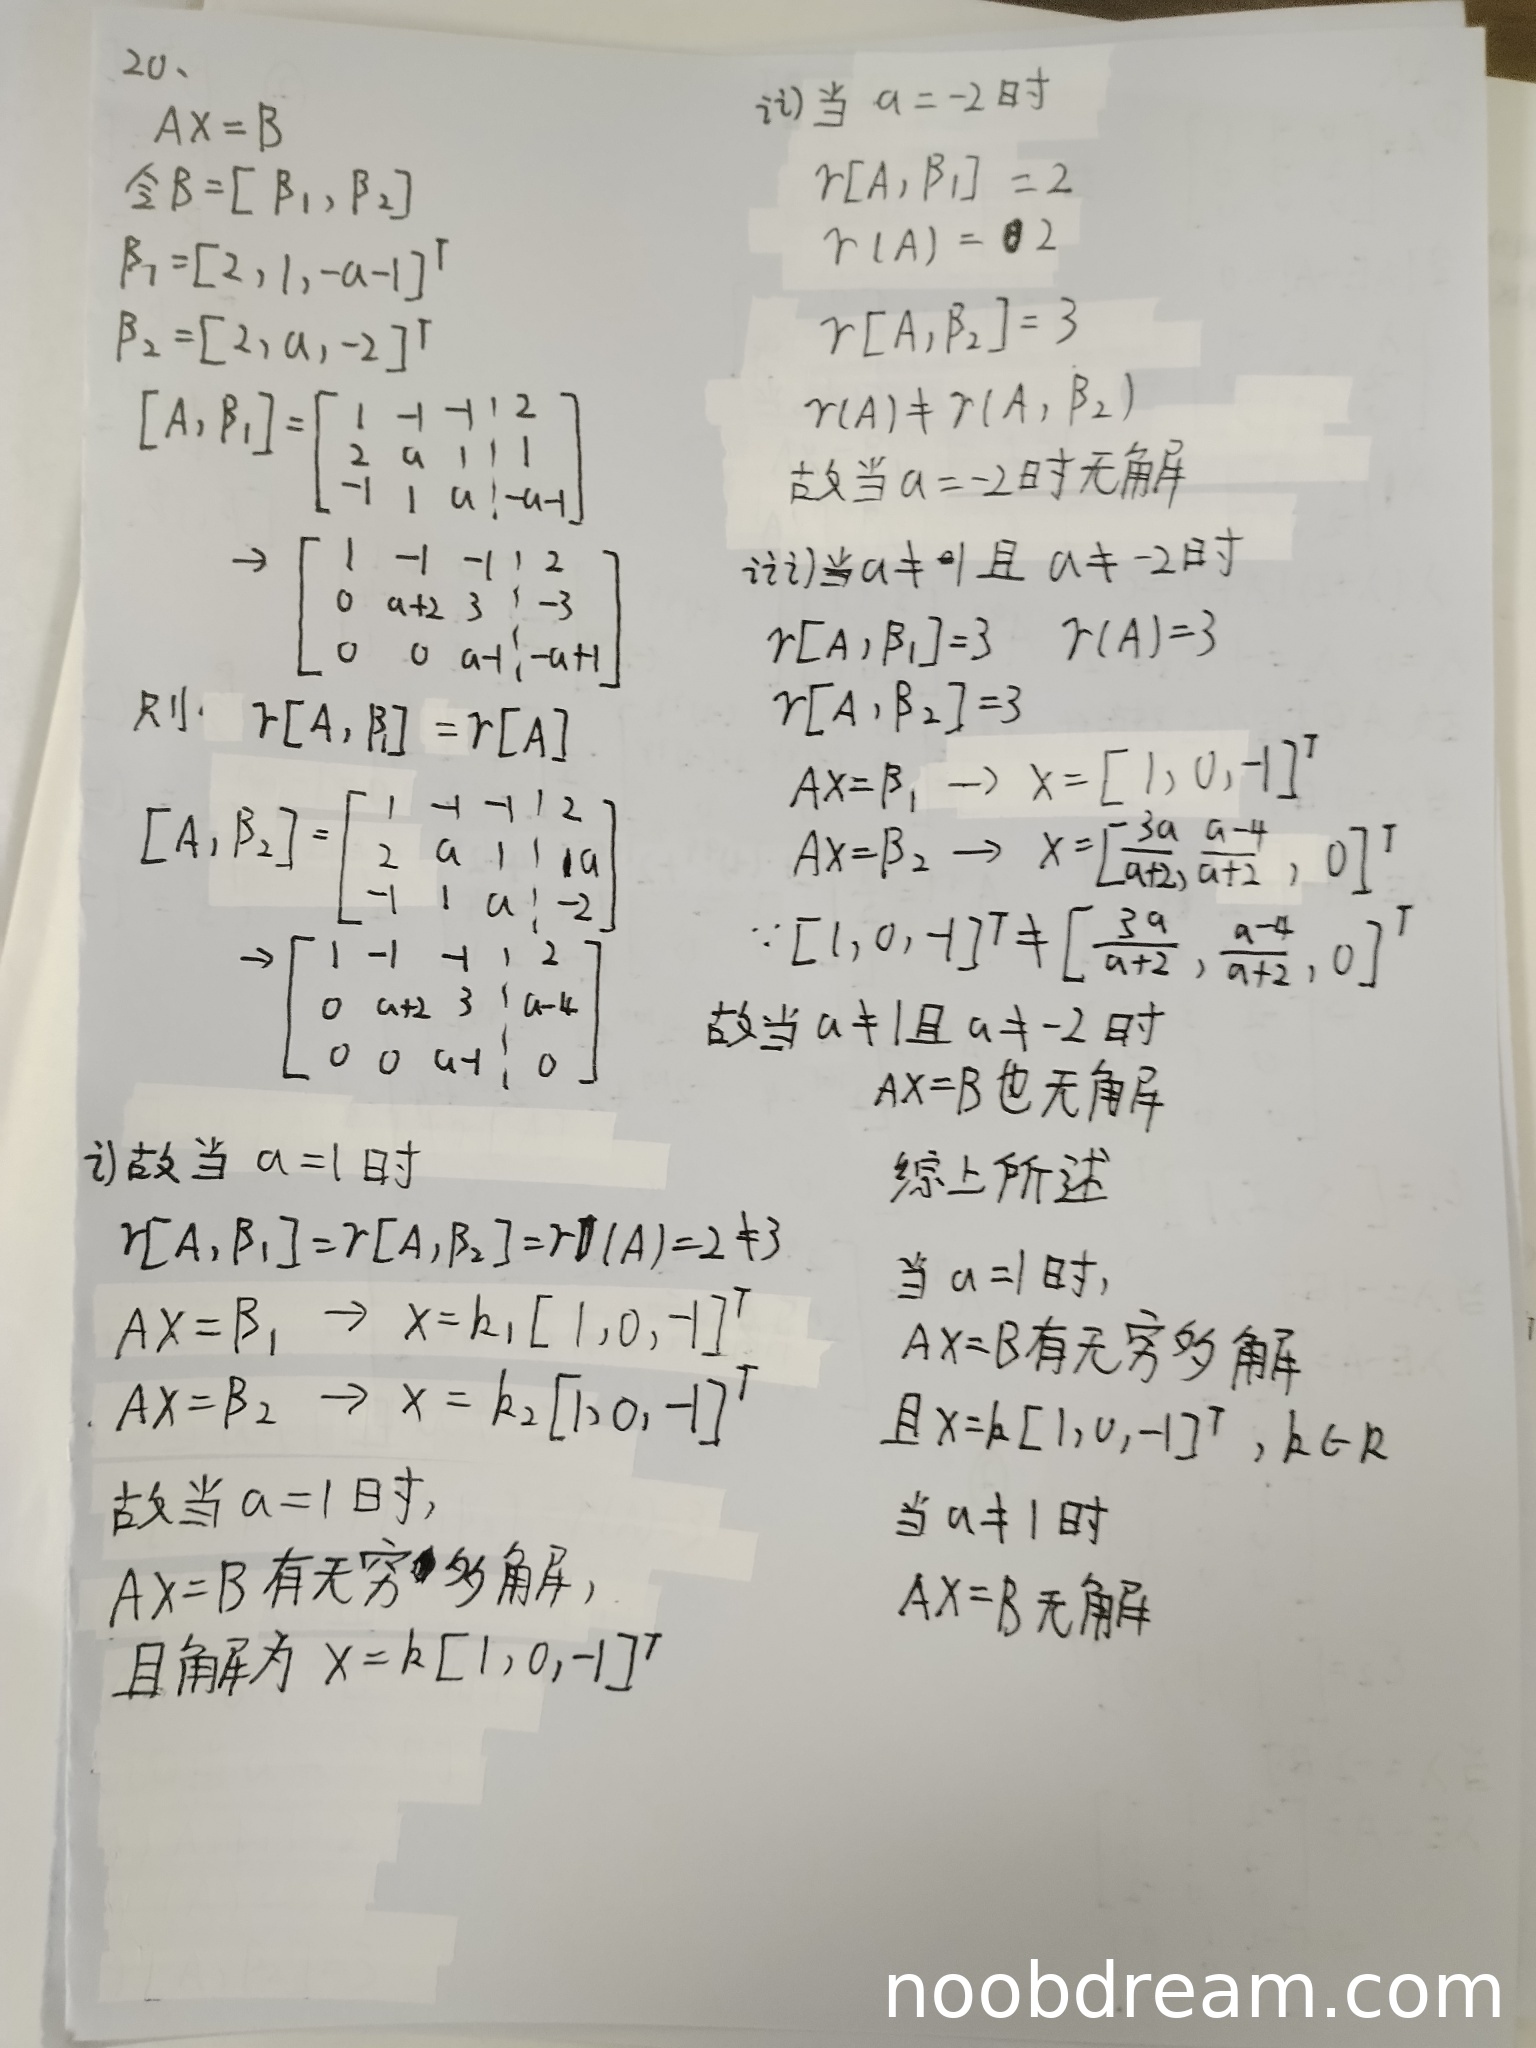 20、
AX=B
令B=[β₁,β₂]
β₁=[2,1,-a-1]ᵀ
β₂=[2,a,-2]ᵀ
[A,β₁]=[1 -1 -1 ¦ 2
2 a 1 ¦ 1
-1 1 a ¦ -a-1]
→[1 -1 -1 ¦ 2
0 a+2 3 ¦ -3
0 0 a-1 ¦ -a+1]
则 r[A,β₁]=r[A]
[A,β₂]=[1 -1 -1 ¦ 2
2 a 1 ¦ a
-1 1 a ¦ -2]
→[1 -1 -1 ¦ 2
0 a+2 3 ¦ a-4
0 0 a-1 ¦ 0]
i)故当 a=1时
r[A,β₁]=r[A,β₂]=r(A)=2≠3
AX=β₁ → X=k₁[1,0,-1]ᵀ
AX=β₂ → X=k₂[1,0,-1]ᵀ
故当a=1时,
AX=B有无穷多解,
且解为 X=k[1,0,-1]ᵀ
ii)当 a=-2时
r[A,β₁]=2
r(A)=2
r[A,β₂]=3
r(A)≠r(A,β₂)
故当a=-2时无解
iii)当a≠1且 a≠-2时
r[A,β₁]=3 r(A)=3
r[A,β₂]=3
AX=β₁ → X=[1,0,-1]ᵀ
AX=β₂ → X=[3a/a+2, a-4/a+2, 0]ᵀ
∵[1,0,-1]ᵀ≠[3a/a+2, a-4/a+2, 0]ᵀ
故当a≠1且a≠-2时
AX=B也无解
综上所述
当a=1时,
AX=B有无穷多解
且X=k[1,0,-1]ᵀ,k∈R
当a≠1时
AX=B无解
noobdream.com